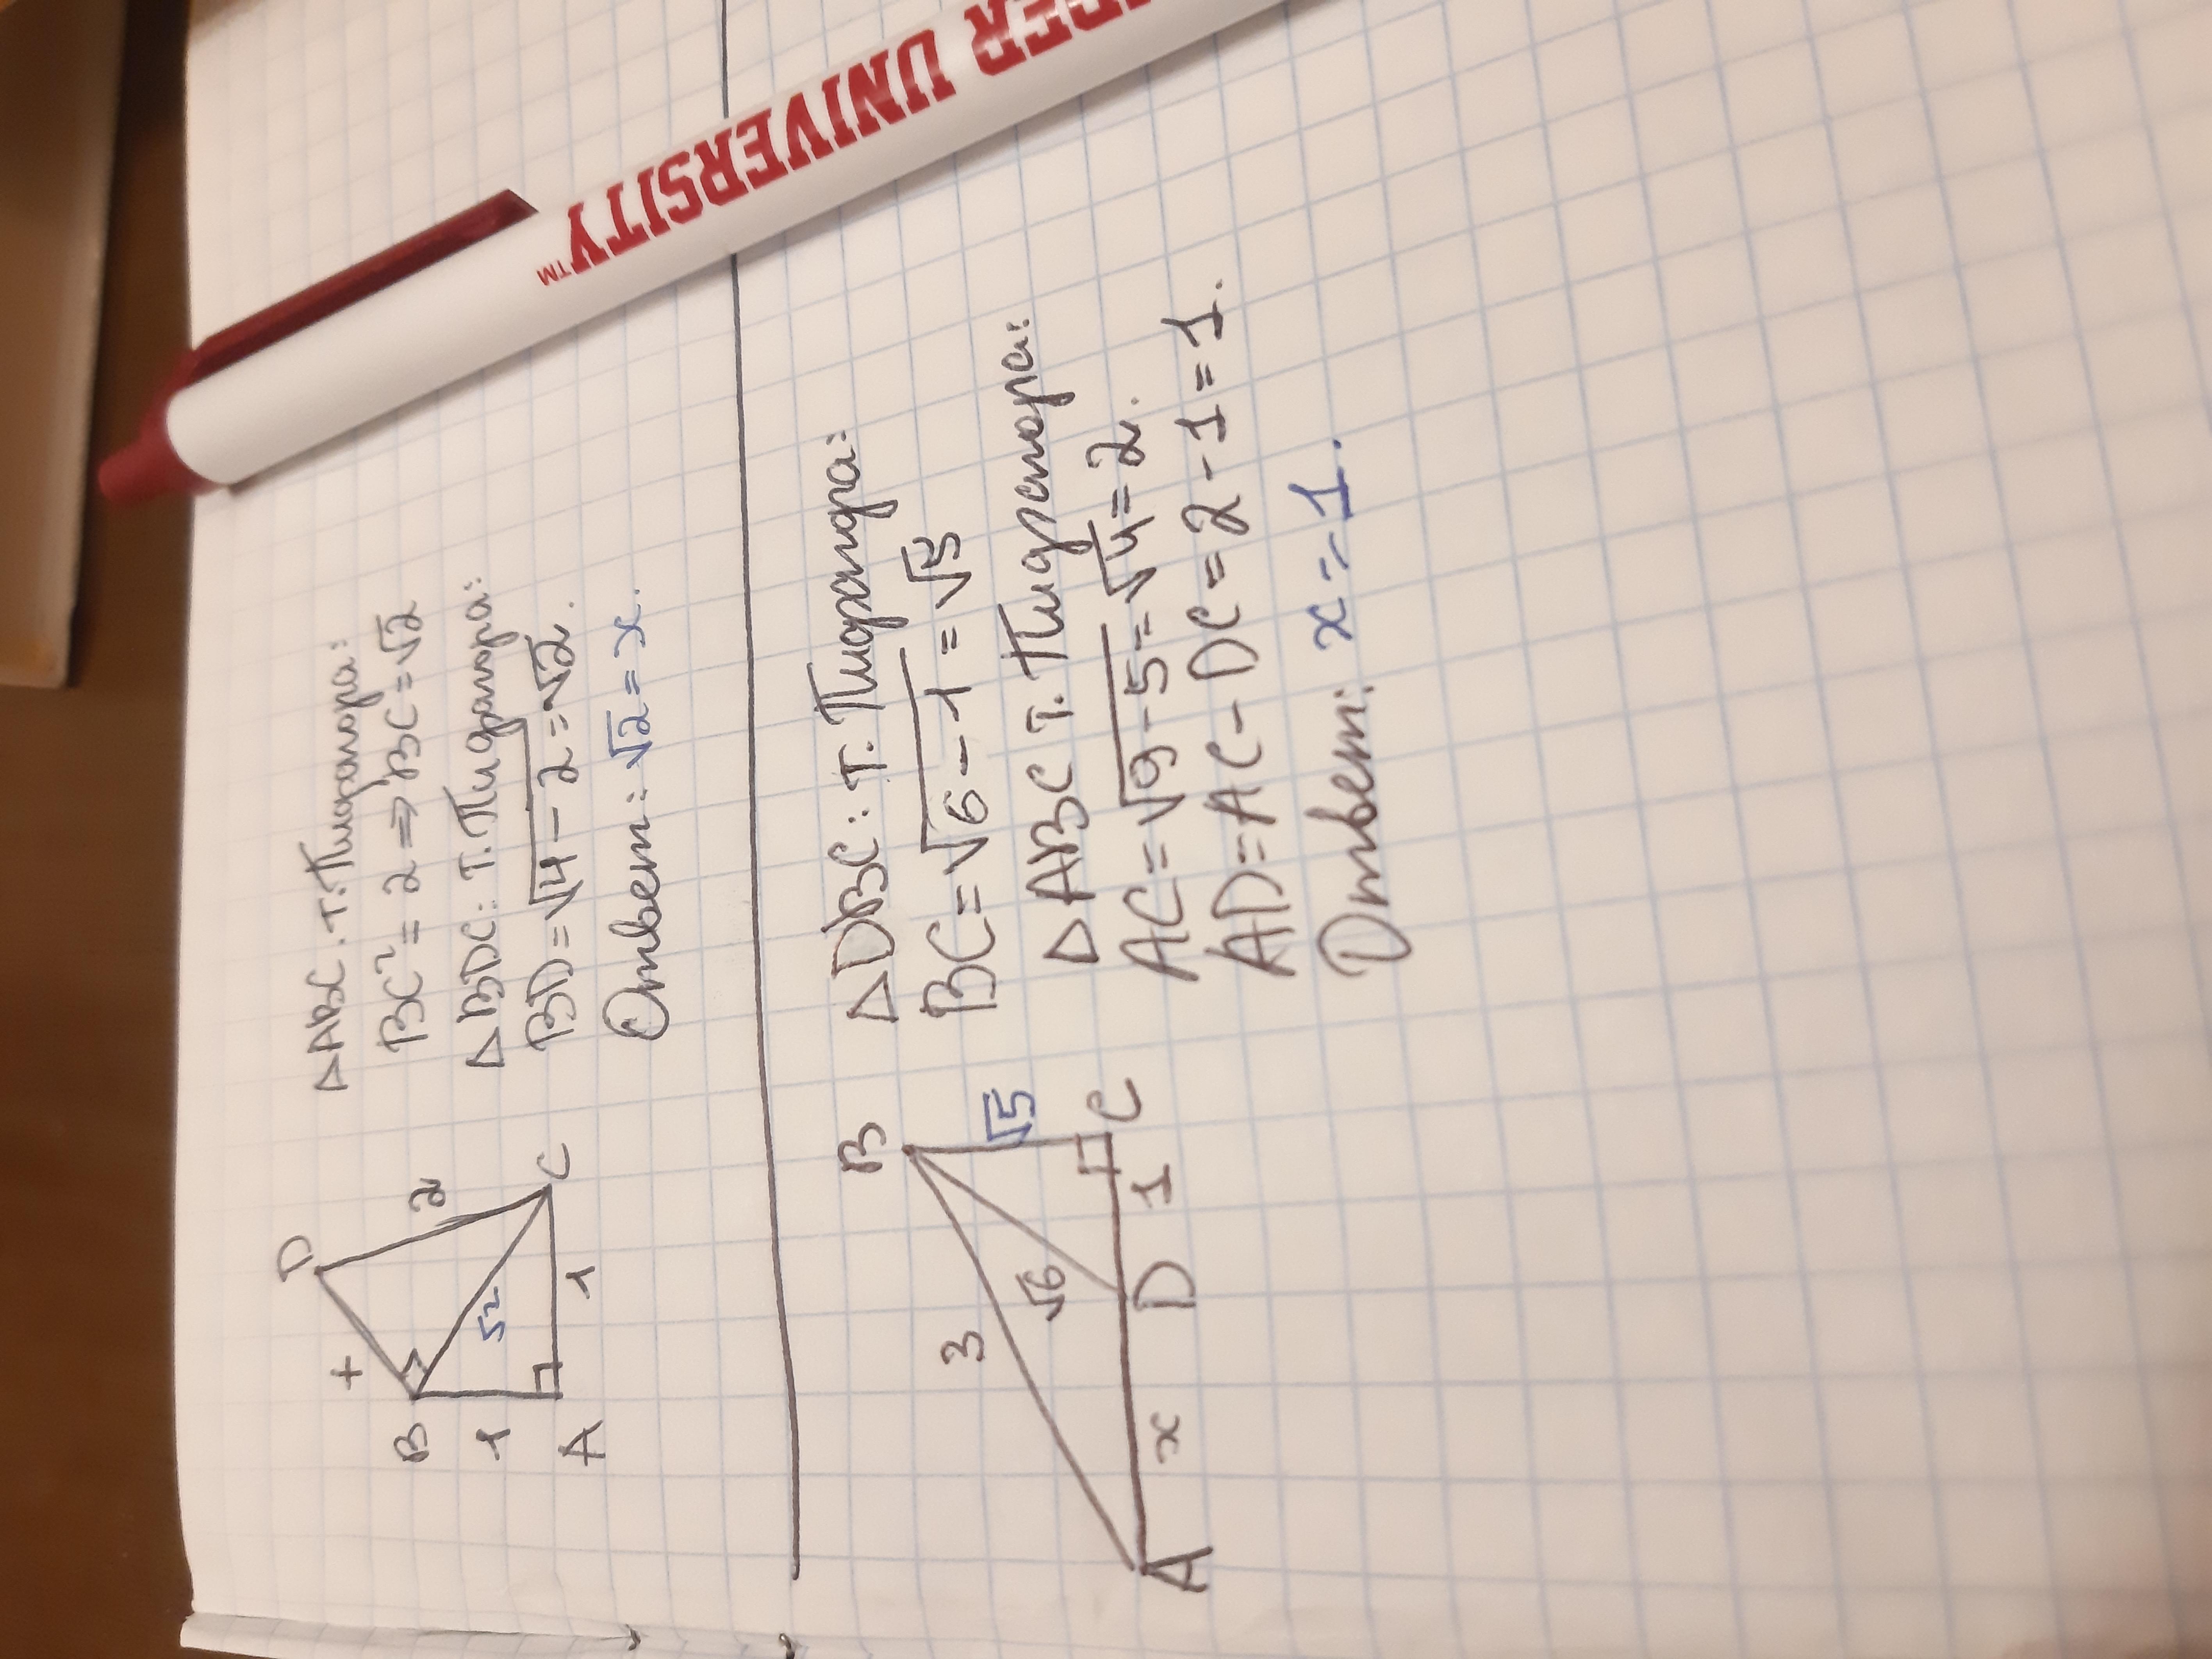 D
x
2
B
√2
1
C
A
1
△ABC: т. Пифагора:
BC² = 2 ⇒ BC = √2
△BDC: т. Пифагора:
BD = √4 - 2 = √2.
Ответ: √2 = x.
B
3
√6
√5
A
x
D
1
C
△DBC: т. Пифагора:
BC = √6 - 1 = √5
△ABC т. Пифагора:
AC = √9 - 5 = √4 = 2.
AD = AC - DC = 2 - 1 = 1.
Ответ: x = 1.
UNIVERSITY™